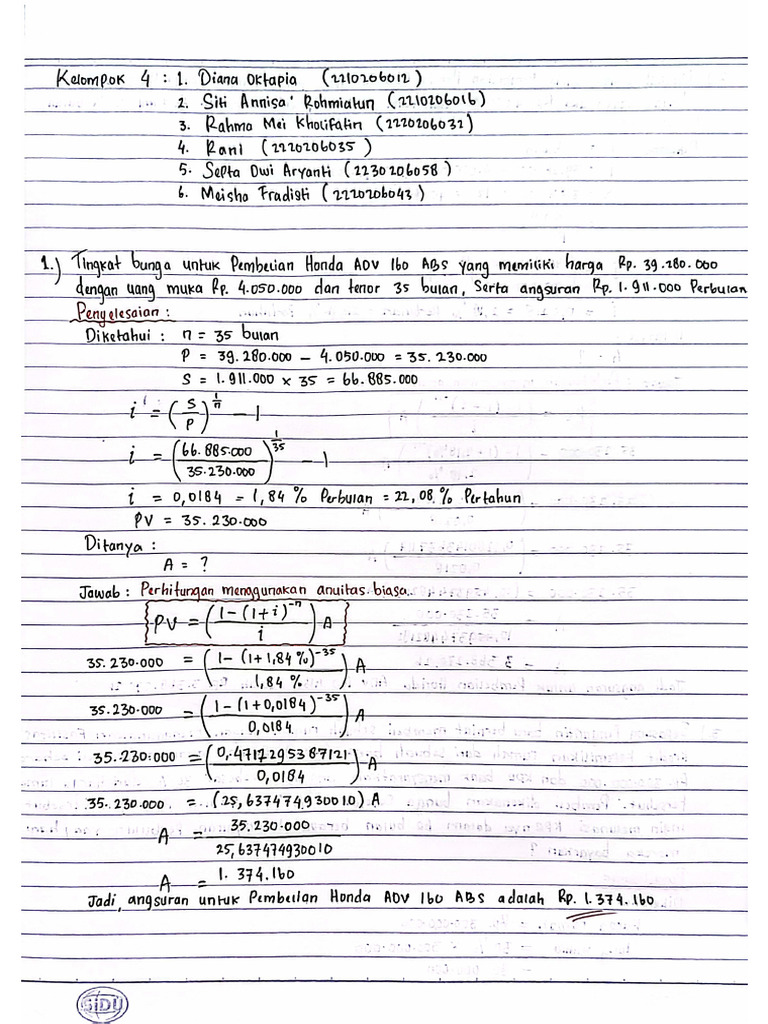 Kelompok 4 : 1. Diana Oktapia (2210206012)
2. Siti Annisa' Rohmiatun (2210206016)
3. Rahma Mei Kholifatin (2220206032)
4. Rani (2220206035)
5. Septa Dwi Aryanti (2230206058)
6. Meisha Fradisti (2220206043)
1.) Tingkat bunga untuk Pembelian Honda ADV 160 ABS yang memiliki harga Rp. 39.280.000
dengan uang muka Rp. 4.050.000 dan tenor 35 bulan, Serta angsuran Rp. 1.911.000 Perbulan
Penyelesaian :
Diketahui : n = 35 bulan
P = 39.280.000 – 4.050.000 = 35.230.000
S = 1.911.000 x 35 = 66.885.000
i = (S/P)^(1/n) – 1
i = (66.885.000/35.230.000)^(1/35) – 1
i = 0,0184 = 1,84 % Perbulan = 22,08 % Pertahun
PV = 35.230.000
Ditanya :
A = ?
Jawab : Perhitungan menggunakan anuitas biasa.
PV = ((1-(1+i)^-n)/i) A
35.230.000 = ((1-(1+1,84 %)^-35)/1,84 %) A
35.230.000 = ((1-(1+0,0184)^-35)/0,0184) A
35.230.000 = (0,4717295387121/0,0184) A
35.230.000 = (25,637474930010) A
A = 35.230.000/25,637474930010
A = 1.374.160
Jadi, angsuran untuk Pembelian Honda ADV 160 ABS adalah Rp. 1.374.160
SIDU